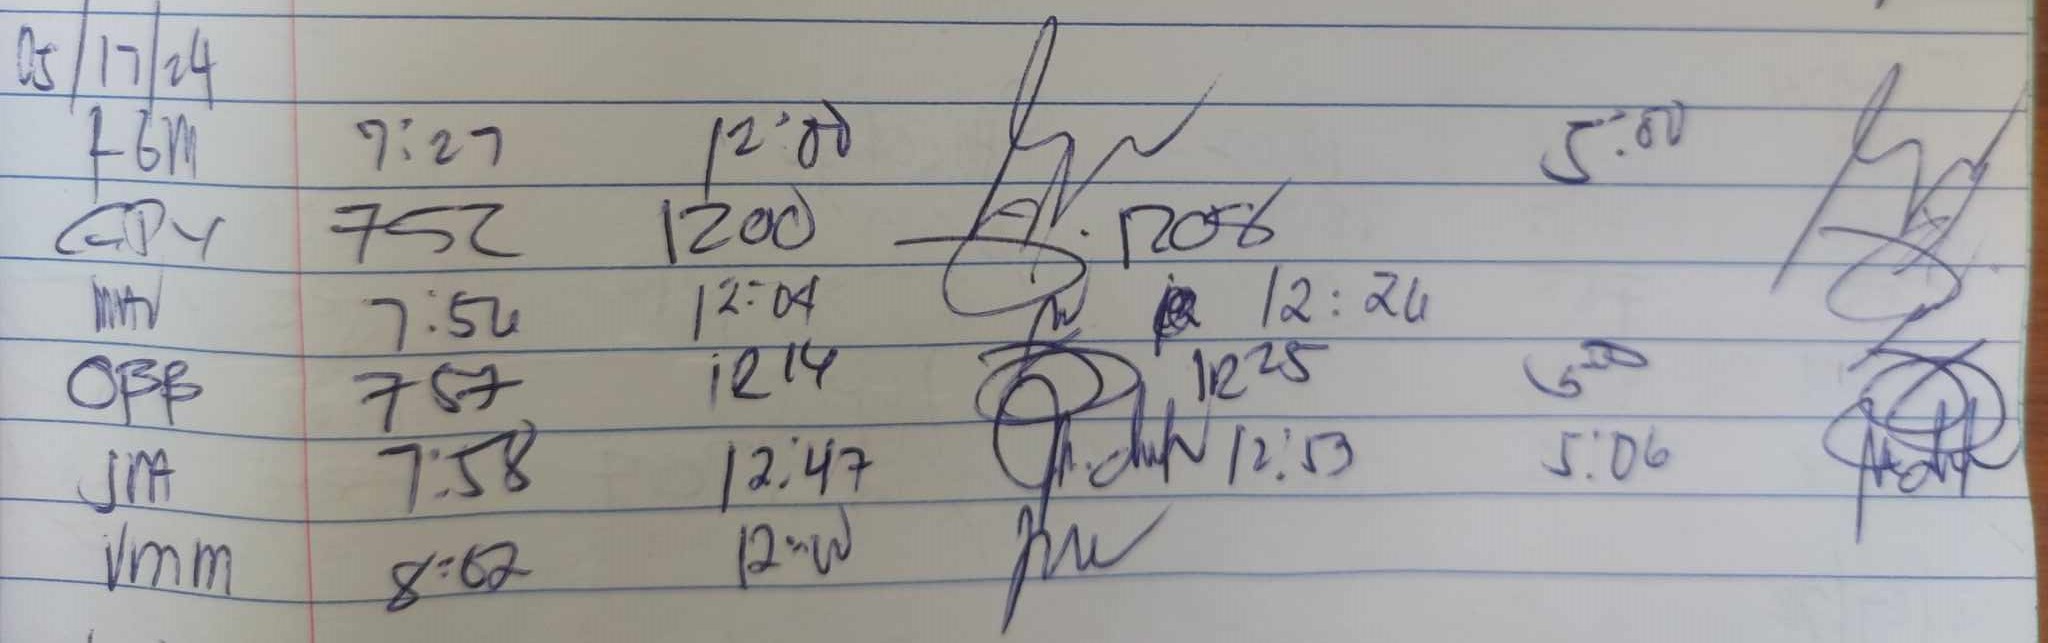 05/17/24
FGM 7:27 12:00 5:00
GDY 752 1200 1206
MAV 7:54 12:04 12:24
OBB 757 1214 1225 500
JMA 7:58 12:47 12:53 5:06
VMM 8:02 12:00